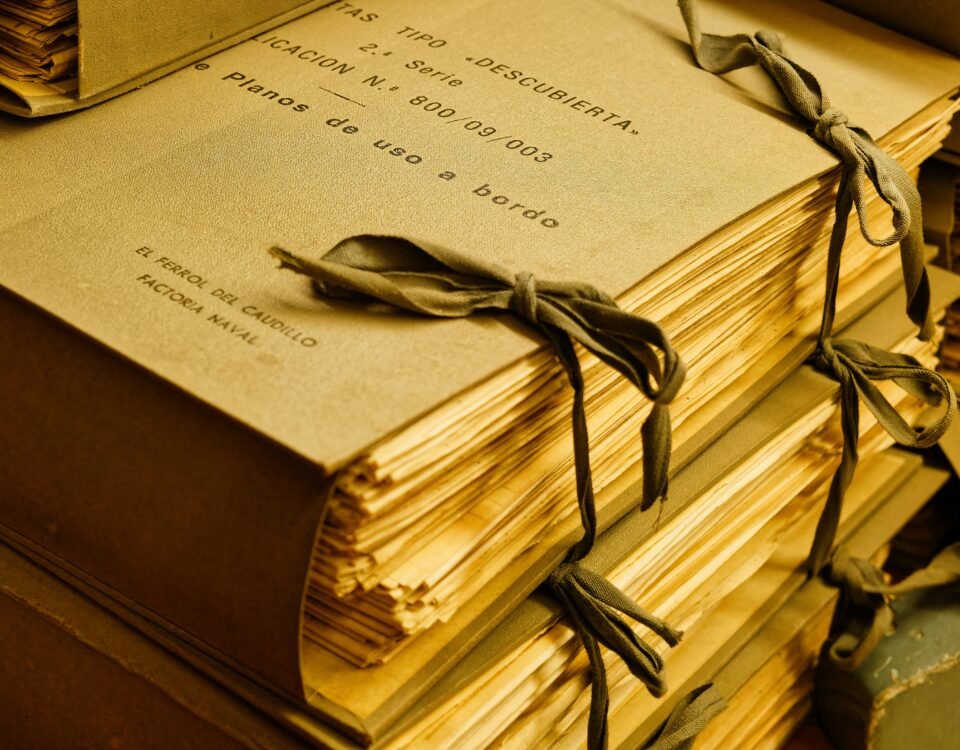 TAS TIPO «DESCUBIERTA»
2.ª Serie
ICACION N.º 800/09/003
e Planos de uso a bordo
EL FERROL DEL CAUDILLO
FACTORIA NAVAL